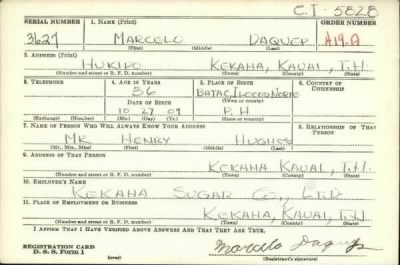 C.I - 5828
SERIAL NUMBER 1. NAME (Print) ORDER NUMBER
3627 MARCELO DAQUEP A19-A
(First) (Middle) (Last)
2. ADDRESS (Print)
HUKIPO KEKAHA, KAUAI, T.H.
(Number and street or R. F. D. number) (Town) (County) (State)
3. TELEPHONE 4. AGE IN YEARS 5. PLACE OF BIRTH 6. COUNTRY OF CITIZENSHIP
36 BATAC ILOCOS NORTE
DATE OF BIRTH (Town or county)
10 27 09 P. H
(Exchange) (Number) (Mo.) (Day) (Yr.) (State or country)
7. NAME OF PERSON WHO WILL ALWAYS KNOW YOUR ADDRESS 8. RELATIONSHIP OF THAT PERSON
MR HENRY HUGHES
(Mr., Mrs., Miss) (First) (Middle) (Last)
9. ADDRESS OF THAT PERSON
KEKAHA KAUAI, T.H.
(Number and street or R. F. D. number) (Town) (County) (State)
10. EMPLOYER'S NAME
KEKAHA SUGAR CO., LTD
11. PLACE OF EMPLOYMENT OR BUSINESS
KEKAHA, KAUAI, T.H.
(Number and street or R. F. D. number) (Town) (County) (State)
I AFFIRM THAT I HAVE VERIFIED ABOVE ANSWERS AND THAT THEY ARE TRUE.
REGISTRATION CARD
D. S. S. Form 1 (over) Marcelo Daquep
(Registrant's signature)